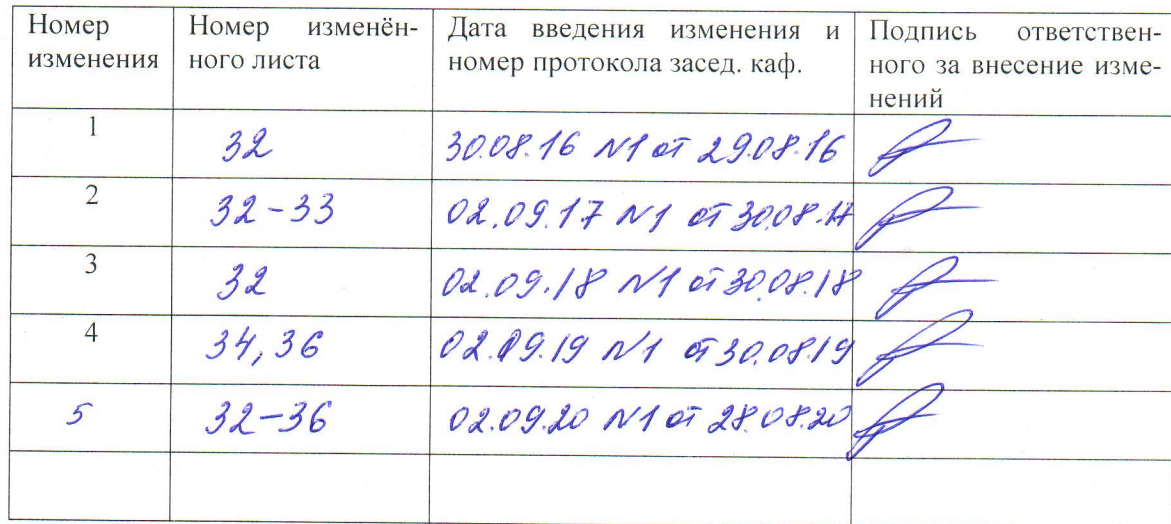 Номер изменения | Номер изменён-ного листа | Дата введения изменения и номер протокола засед. каф. | Подпись ответствен-ного за внесение изме-нений
1 | 32 | 30.08.16 N1 от 29.08.16
2 | 32-33 | 02.09.17 N1 от 30.08.17
3 | 32 | 02.09.18 N1 от 30.08.18
4 | 34, 36 | 02.09.19 N1 от 30.08.19
5 | 32-36 | 02.09.20 N1 от 28.08.20